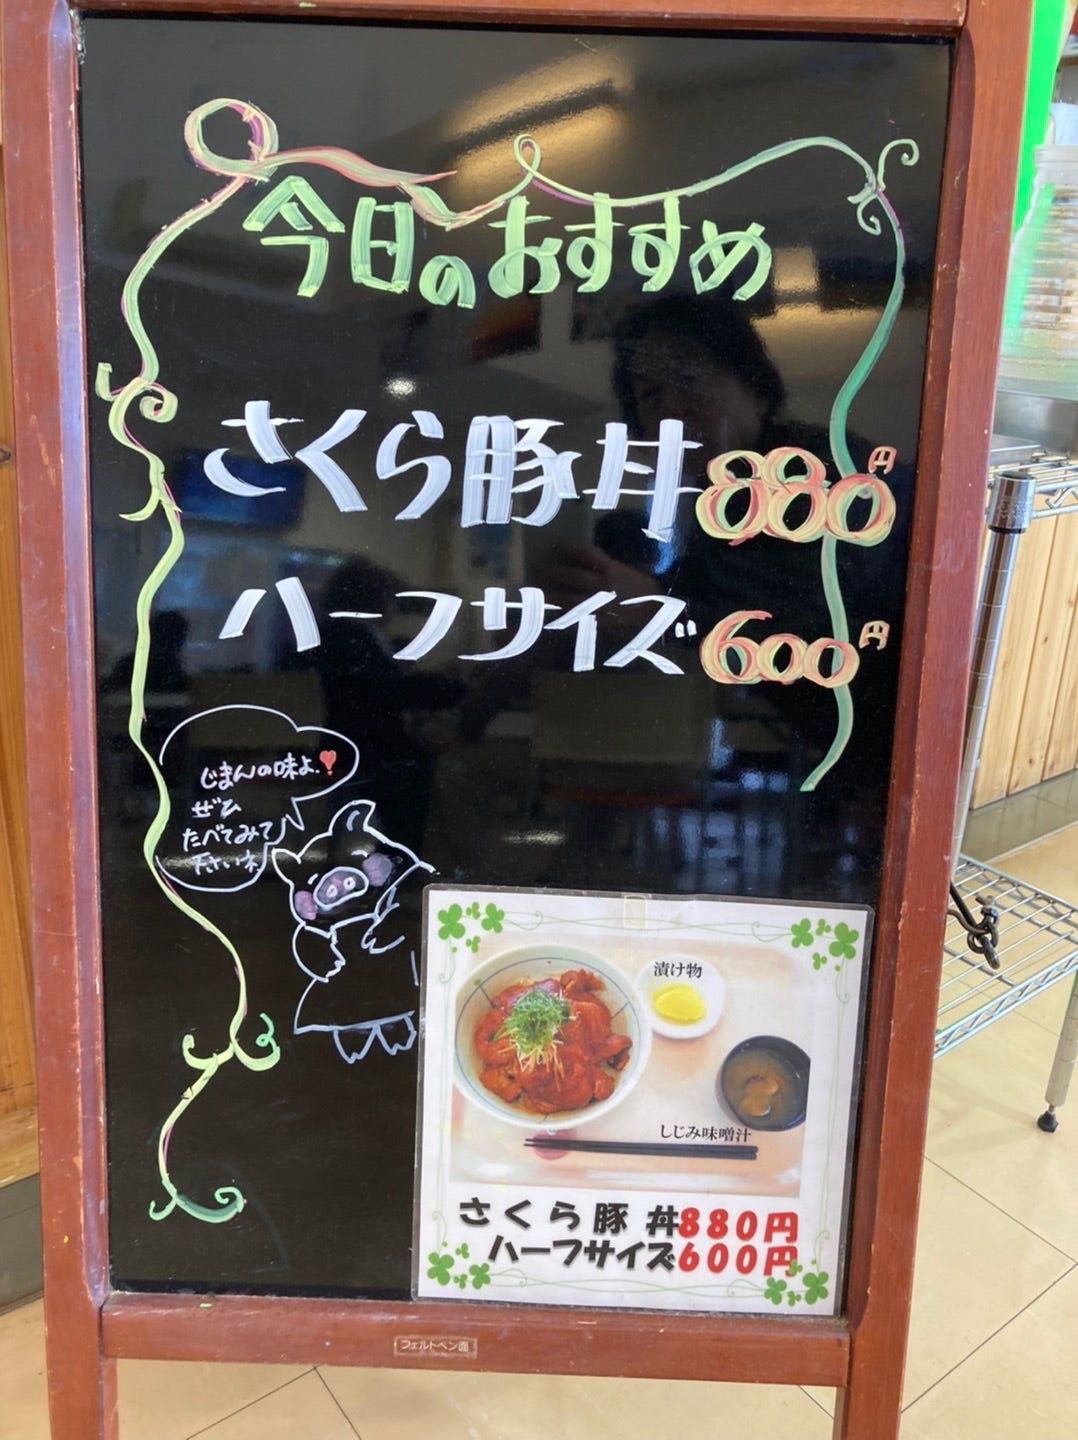 今日のおすすめ
さくら豚丼 880円
ハーフサイズ 600円
じまんの味よ♥
ぜひ
たべてみて
下さいネ
漬け物
しじみ味噌汁
さくら豚 丼880円
ハーフサイズ600円
フェルトペン面